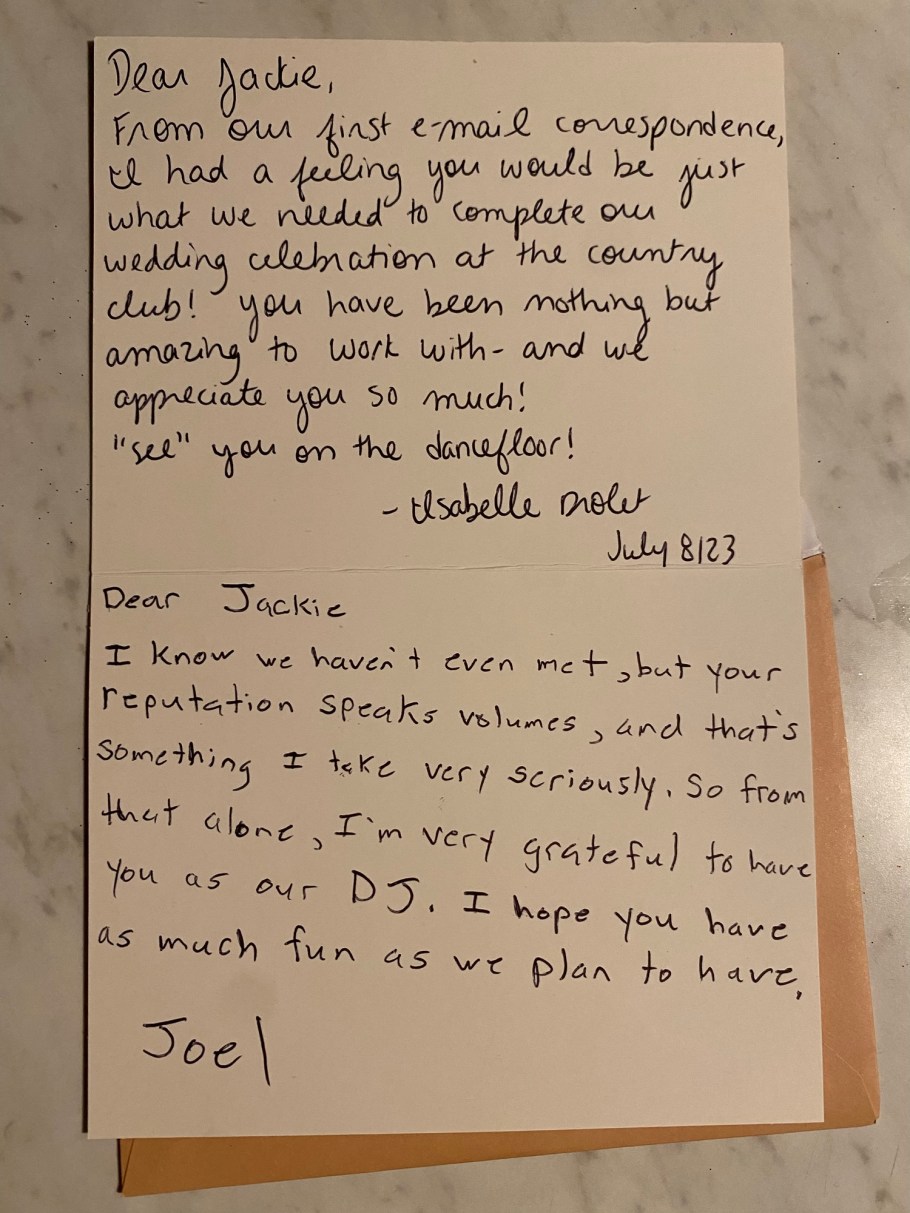 Dear Jackie,
From our first e-mail correspondence,
I had a feeling you would be just
what we needed to complete our
wedding celebration at the country
club! you have been nothing but
amazing to work with - and we
appreciate you so much!
"see" you on the dancefloor!
- Isabelle Drolet
July 8/23
Dear Jackie
I know we haven't even met, but your
reputation speaks volumes, and that's
something I take very seriously. So from
that alone, I'm very grateful to have
you as our DJ. I hope you have
as much fun as we plan to have.
Joel